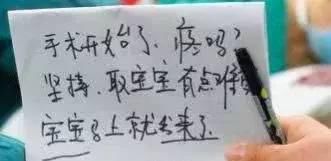 手术开始了、疼吗?
坚持、取宝宝有点难
宝宝马上就出来了